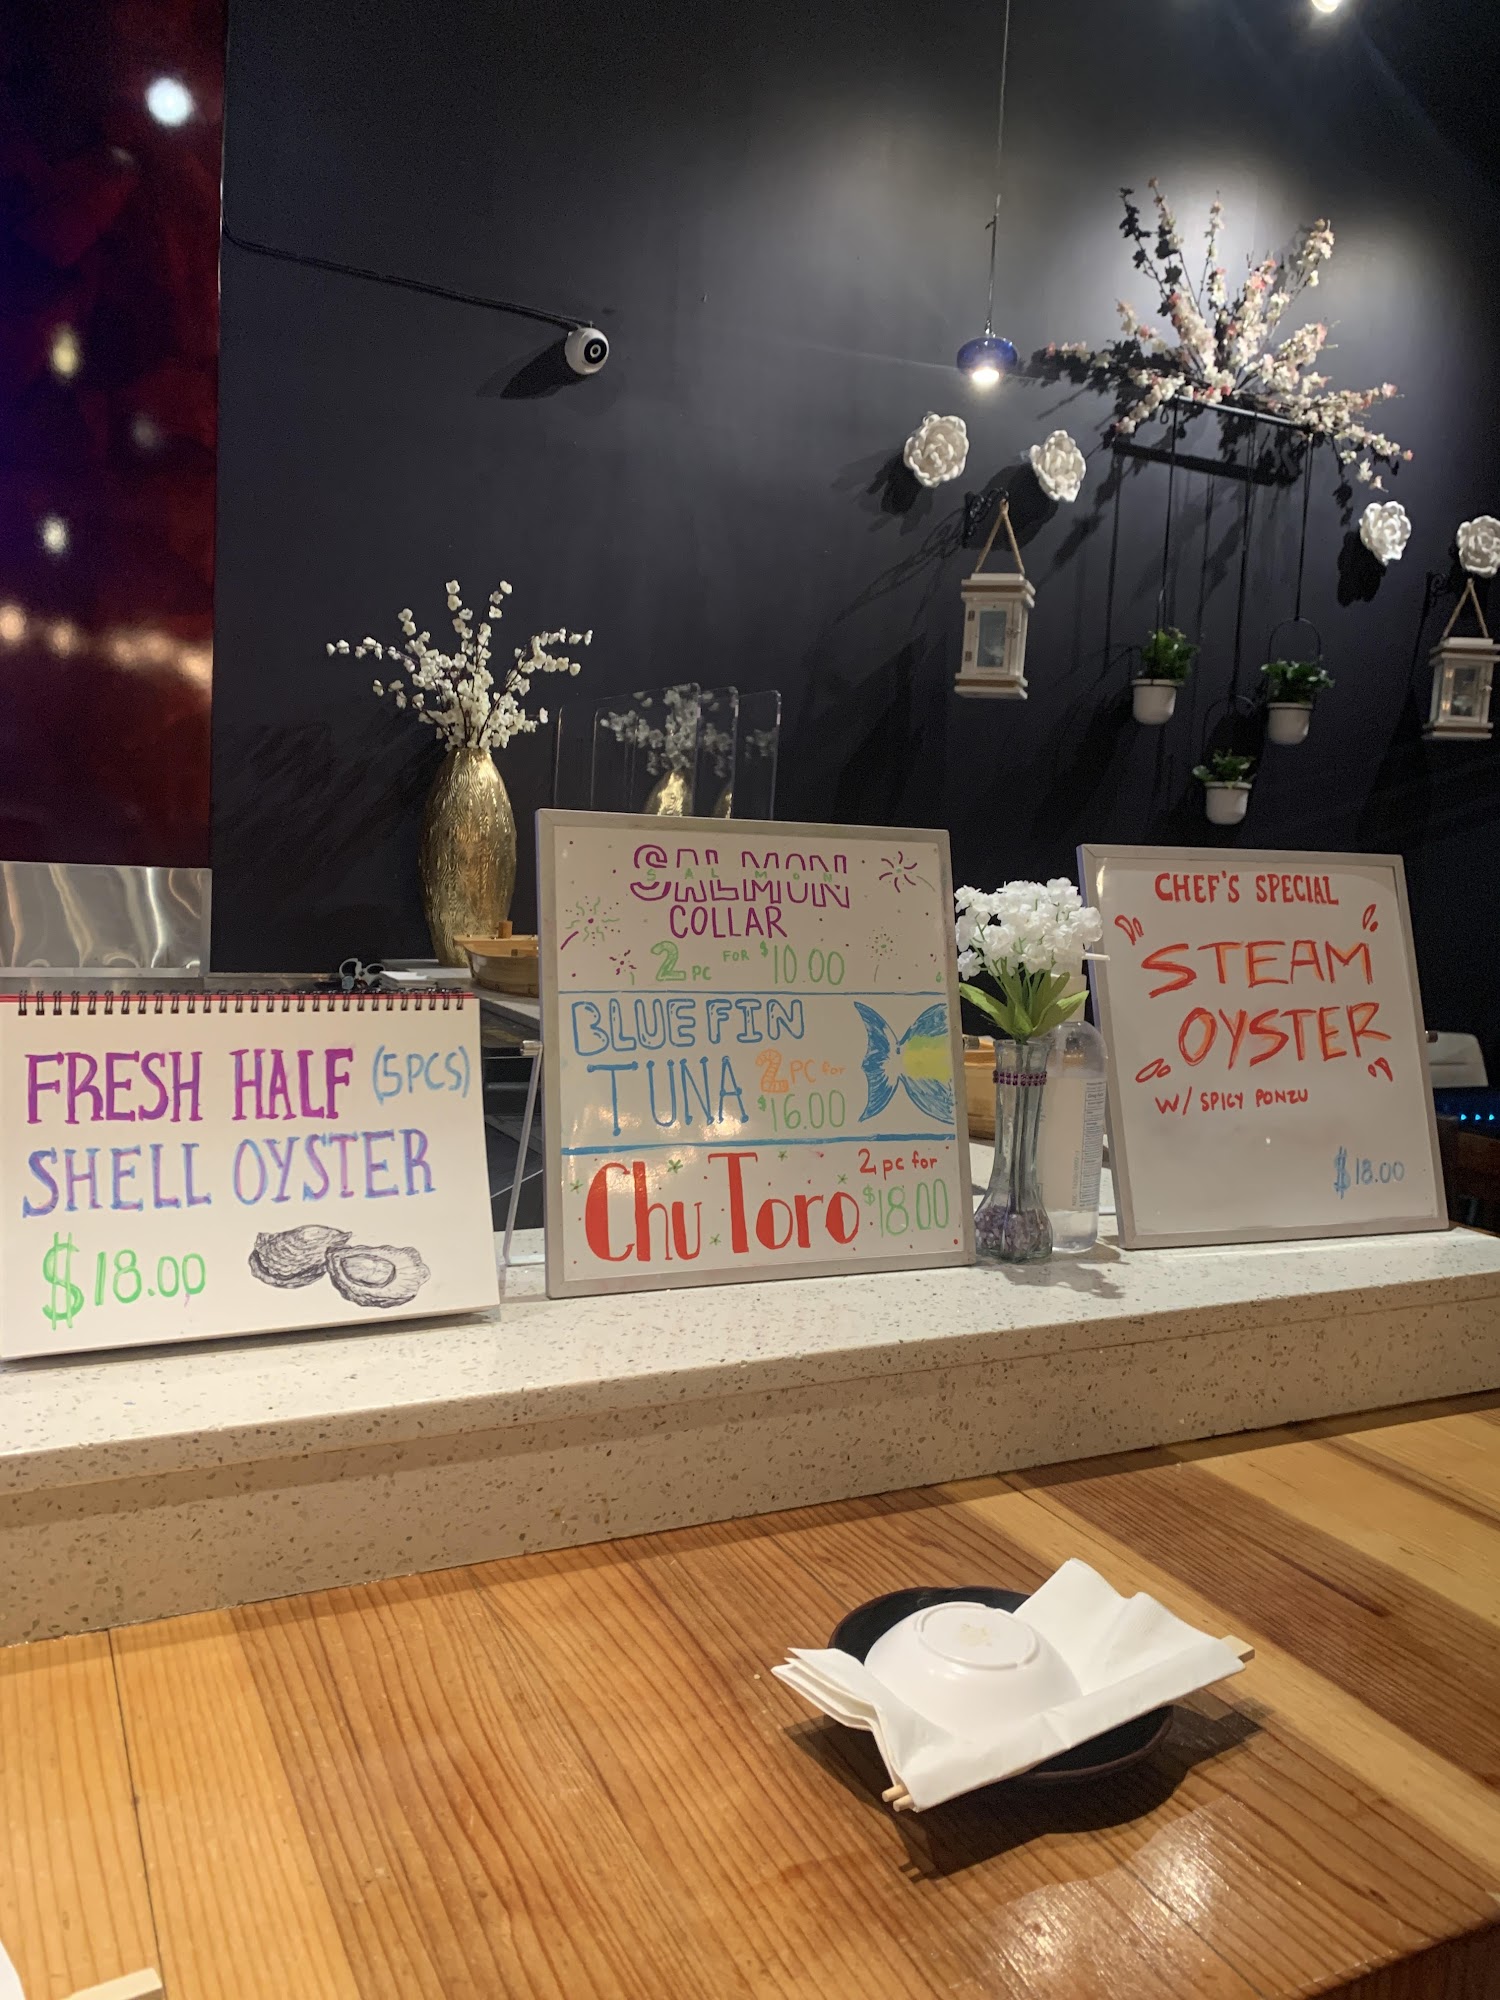 FRESH HALF (5PCS)
SHELL OYSTER
$18.00
SALMON
SALMON
COLLAR
2 PC FOR $10.00
BLUE FIN
TUNA 2 PC for
$16.00
Chu Toro 2 pc for
$18.00
CHEF'S SPECIAL
STEAM
OYSTER
W/ SPICY PONZU
$18.00